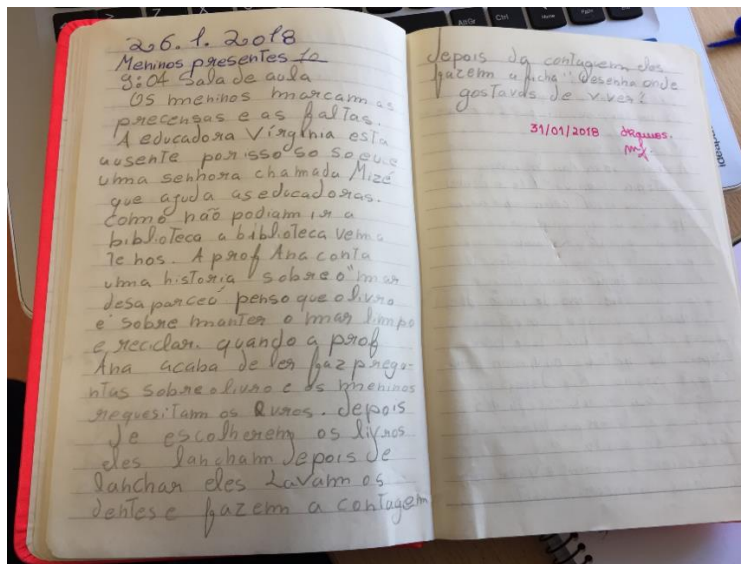 26.1.2018
Meninos presentes 10
9:04 Sala de aula
Os meninos marcam as
precensas e as faltas.
A educadora Virginia esta
ausente por isso so
uma senhora chamada Mizé
que ajuda as educadoras.
como não podiam ir a
biblioteca a biblioteca vem a
te nos. A prof Ana conta
uma historia sobre o "mar
desaparceu" penso que o livro
é sobre manter o mar limpo
e reciclar. quando a prof
Ana acaba de ler faz prego-
ntas sobre o livro e os meninos
requesitam os livros. depois
de escolherem os livros
eles lancham depois de
lanchar eles Lavam os
dentes e fazem a contagem
depois da contagem eles
fazem a ficha "desenha onde
gostavas de viver?
31/01/2018